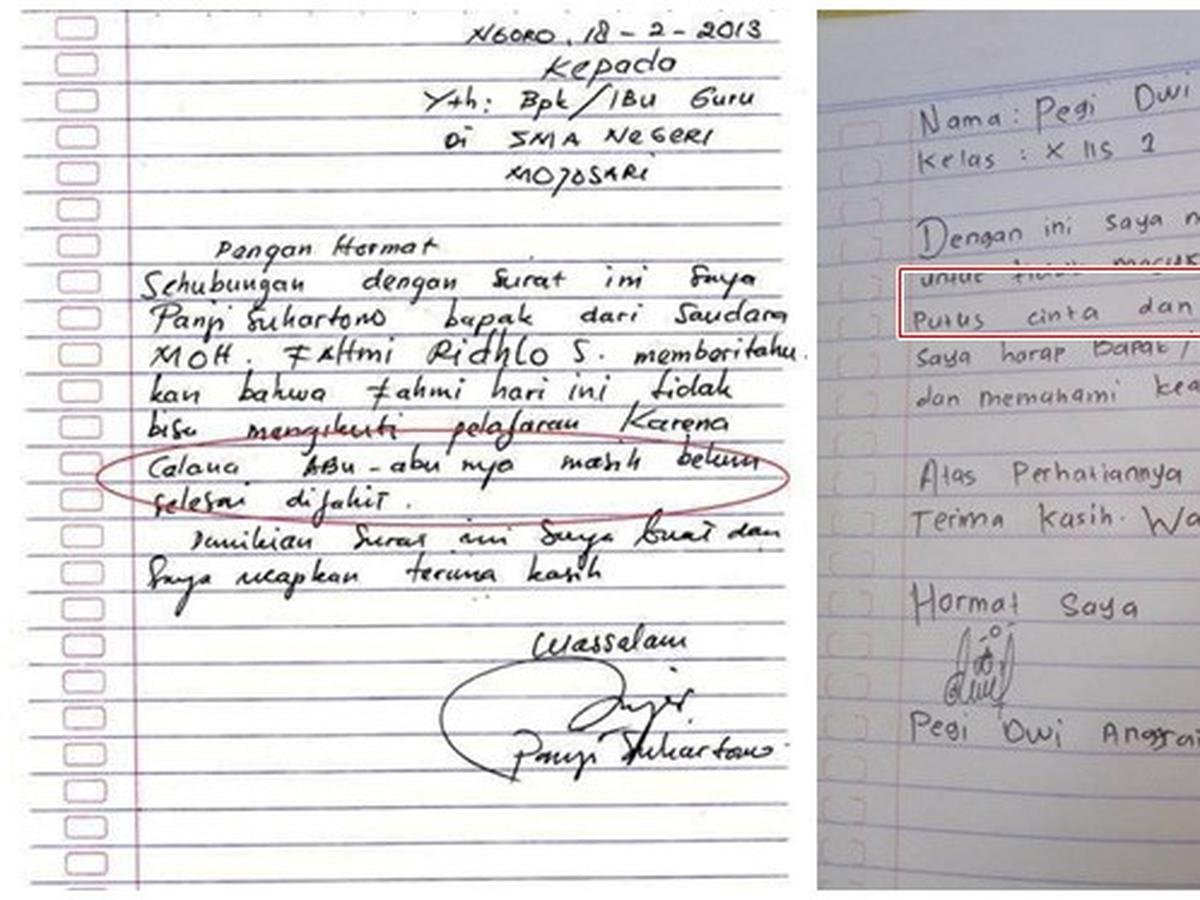 NGORO, 18 - 2 - 2013
Kepada
Yth: Bpk/IBu Guru
Di SMA NEGERI
MOJOSARI
Dengan Hormat
Sehubungan dengan surat ini Saya
Panji Suhartono bapak dari Saudara
MOH. FAHmi Ridhlo S. memberitahu
kan bahwa Fahmi hari ini tidak
bisa mengikuti pelajaran Karena
Celana ABu-abu nya masih belum
selesai dijahit.
Demikian Surat ini Saya buat dan
Saya ucapkan terima kasih
Wassalam
Panji Suhartono
Nama : Pegi Dwi
Kelas : X IIS 1
Dengan ini saya
untuk tidak masuk
Putus cinta dan
Saya harap Bapak /
dan memahami
Atas Perhatiannya
Terima Kasih. Wa
Hormat Saya
Pegi Dwi Anggrai